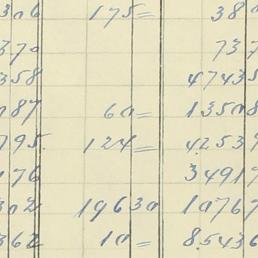 306 175= 380
370 737
358 47435
787 60= 13508
795. 124= 42539
176 34917
302 19630 10767
362 10= 8.5436